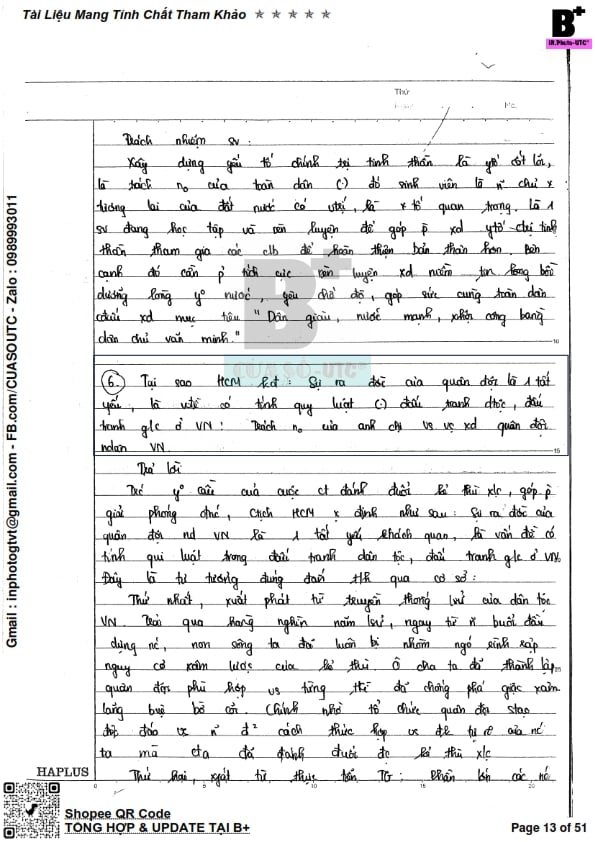 Tài Liệu Mang Tính Chất Tham Khảo ★ ★ ★ ★ ★
B+
IN.Photo-UTC®
Thứ
Trách nhiệm sv :
Xây dựng yếu tố chính trị tinh thần là cốt lõi,
là trách no của toàn dân (.) đó sinh viên là chủ
tương lai của đất nước có là tố quan trọng, là 1
sv đang học tập và rèn luyện để góp p xd ytố ctrị tinh
thần tham gia các clb để hoàn thiện bản thân hơn Bên
cạnh đó cần p tích cực rèn luyện xd niềm tin lòng bồi
dưỡng lòng yo nước, yêu chế độ, góp sức cùng toàn dân
xd mục tiêu " Dân giàu, nước mạnh, xhội công bằng
dân chủ văn minh."
10
B+
CỬA SỔ-UTC®
6. Tại sao HCM kđ : Sự ra đời của quân đội là 1 tất
yếu, là vđề có tính quy luật (.) đấu tranh dtộc, đấu
tranh g/c ở VN ! Trách no của anh chị vs vc xd quân đội
ndan VN
15
Trả lời
yo cầu của cuộc ct đánh đuổi kẻ thù xlc, góp p
giải phóng đnc, Ctịch HCM x định như sau : Sự ra đời của
quân đội nd VN là 1 tất yếu khách quan, là vấn đề có
tính qui luật trong đấu tranh dân tộc, đấu tranh g/c ở VN.
Đây là tư tưởng đúng đắn qua cơ sở :
Thứ nhất, xuất phát từ truyền thống lsử của dân tộc
VN. Trải qua hàng nghìn năm lsử, ngay từ buổi đầu
dựng nc, non sông ta đã luôn bị nhòm ngó
nguy cơ xâm lược của kẻ thù. Ô cha ta đã thành lập
25
quân đội phù hợp vs từng đã chống phá giặc xâm
lăng bờ cõi. Chính nhờ tổ chức quân đội
độc đáo cách thức hợp của nc
ta mà cta đã đánh đuổi đc kẻ thù xlc
Thứ hai, xphát từ thực tiễn TG : Phần lớn các nc
HAPLUS
0 5 10 15 20
Gmail : inphotogtvt@gmail.com - FB.com/CUASOUTC - Zalo : 0989993011
Shopee QR Code
TỔNG HỢP & UPDATE TẠI B+
Page 13 of 51